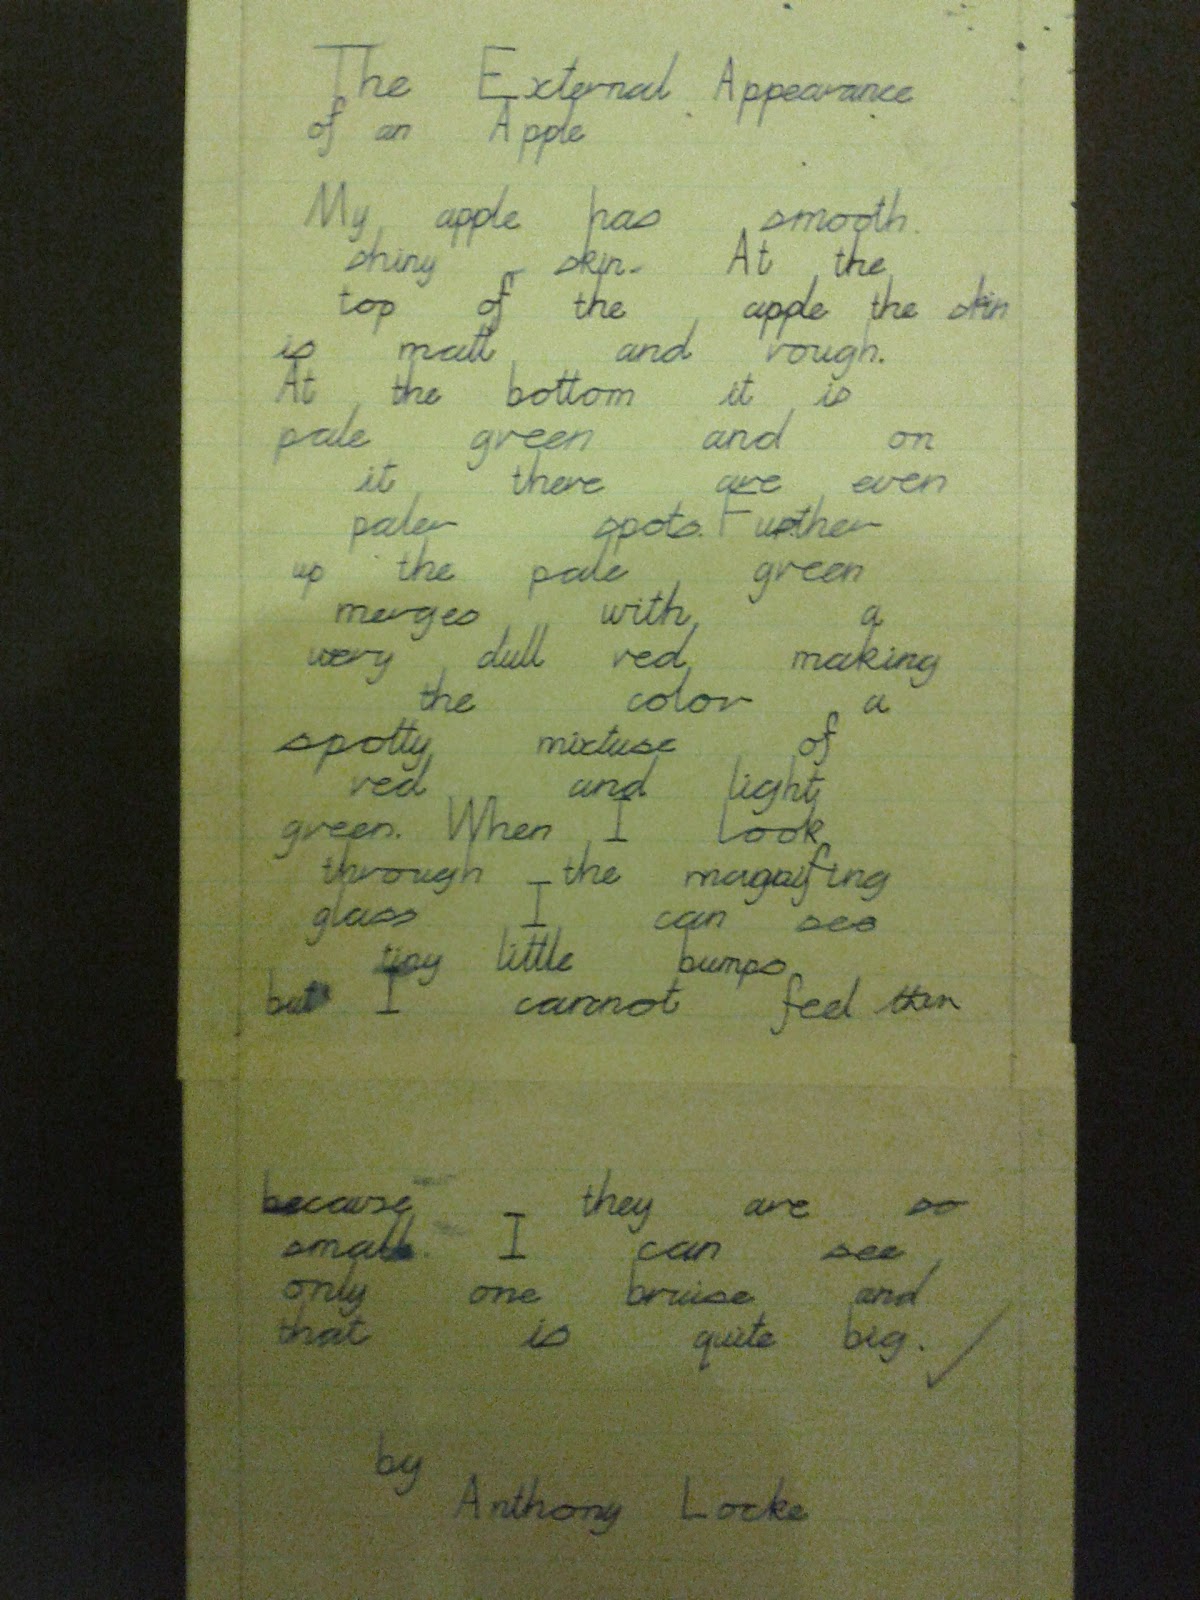 The External Appearance
of an Apple
My apple has smooth
shiny skin. At the
top of the apple the skin
is matt and rough.
At the bottom it is
pale green and on
it there are even
paler spots. Futher
up the pale green
merges with a
very dull red making
the color a
spotty mixture of
red and light
green. When I look
through the magnifing
glass I can see
tiny little bumps
but I cannot feel them
because they are so
small. I can see
only one bruise and
that is quite big.
by
Anthony Locke